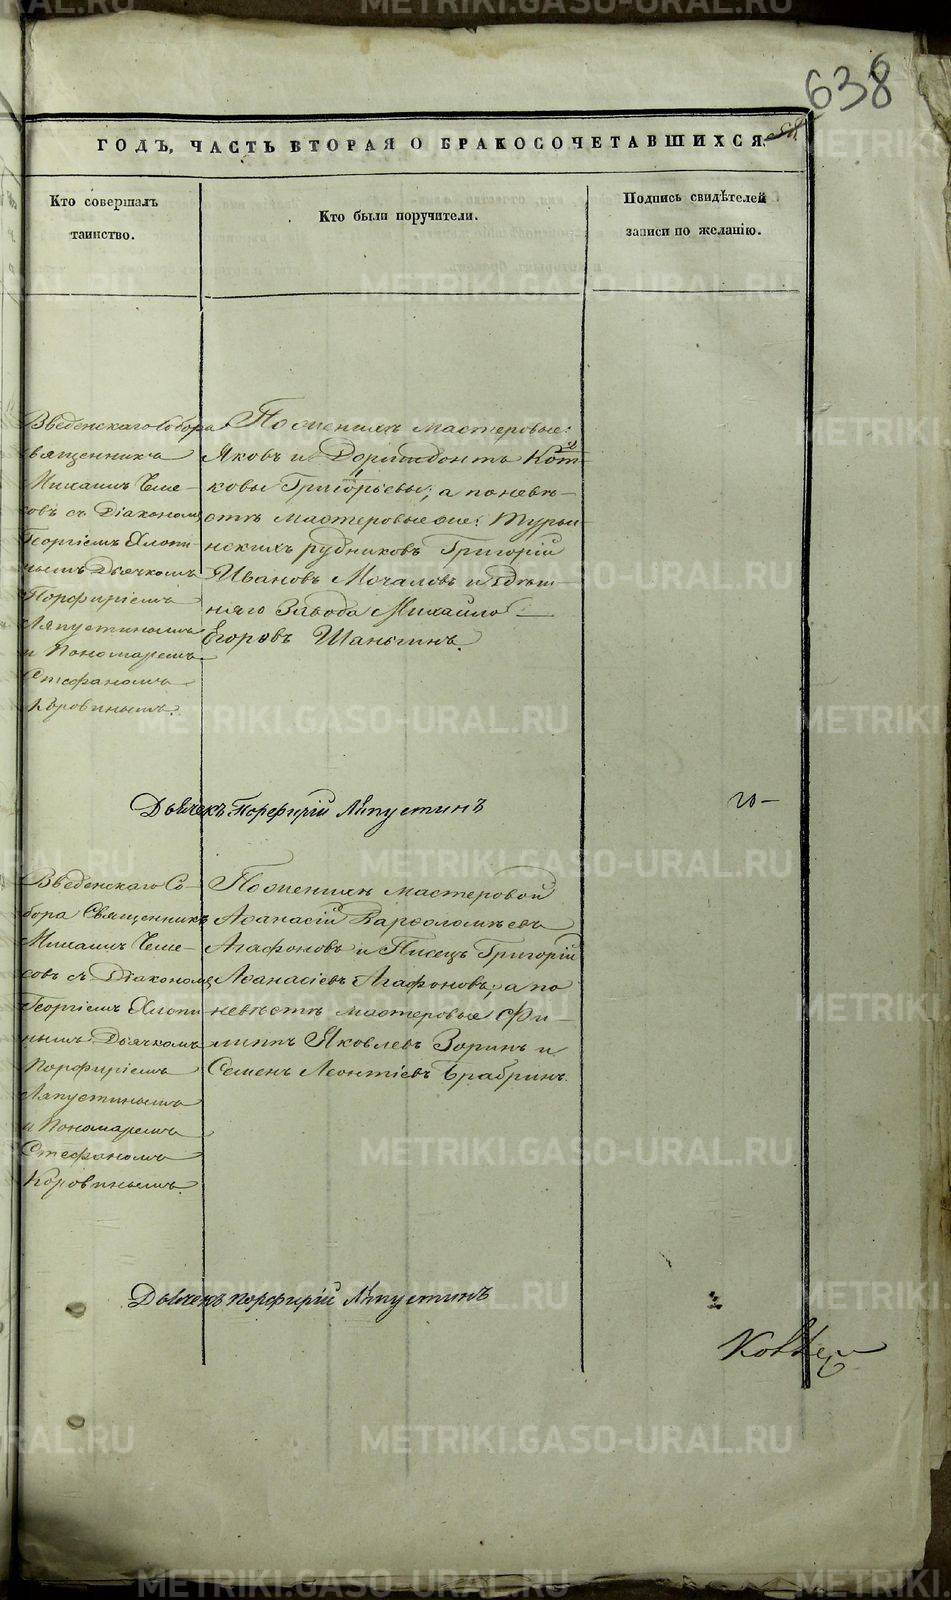 638
ГОДЪ, ЧАСТЬ ВТОРАЯ О БРАКОСОЧЕТАВШИХСЯ.
Кто совершалъ
таинство.
Кто были поручители.
Подпись свидѣтелей
записи по желанію.
Введенскаго Собора
священникъ
Михаилъ
съ Діакономъ
Георгіемъ Хлопи-
нымъ Дьячкомъ
Порфиріемъ
Ляпустинымъ
и Пономаремъ
Стефаномъ
Коровинымъ.
По женихѣ мастеровые:
Яковъ и Дормидонтъ Кот-
ковы Григорьевы; а по невѣ-
стѣ мастеровые же: Турьи-
нскихъ рудниковъ Григорій
Ивановъ Мочаловъ и здѣш-
няго Завода Михайло
Егоровъ Шаньгинъ.
Дьячекъ Порфирій Ляпустинъ
Введенскаго Со-
бора Священникъ
Михаилъ
съ Діакономъ
Георгіемъ Хлопи-
нымъ Дьячкомъ
Порфиріемъ
Ляпустинымъ
и Пономаремъ
Стефаномъ
Коровинымъ.
По женихѣ мастеровой
Аѳанасій Варѳоломѣевъ
Агафоновъ и Писецъ Григорій
Аѳанасіевъ Агафоновъ; а по
невѣстѣ мастеровые Фи-
липъ Яковлевъ Зоринъ и
Семенъ Леонтіевъ Брабринъ.
Дьячекъ Порфирій Ляпустинъ
METRIKI.GASO-URAL.RU